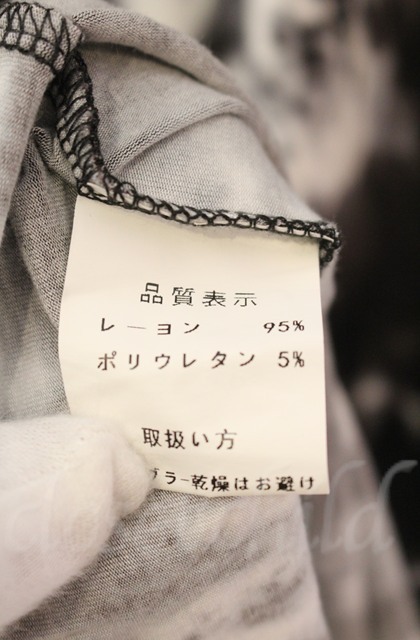 品質表示
レーヨン 95%
ポリウレタン 5%
取扱い方
ブラー乾燥はお避け